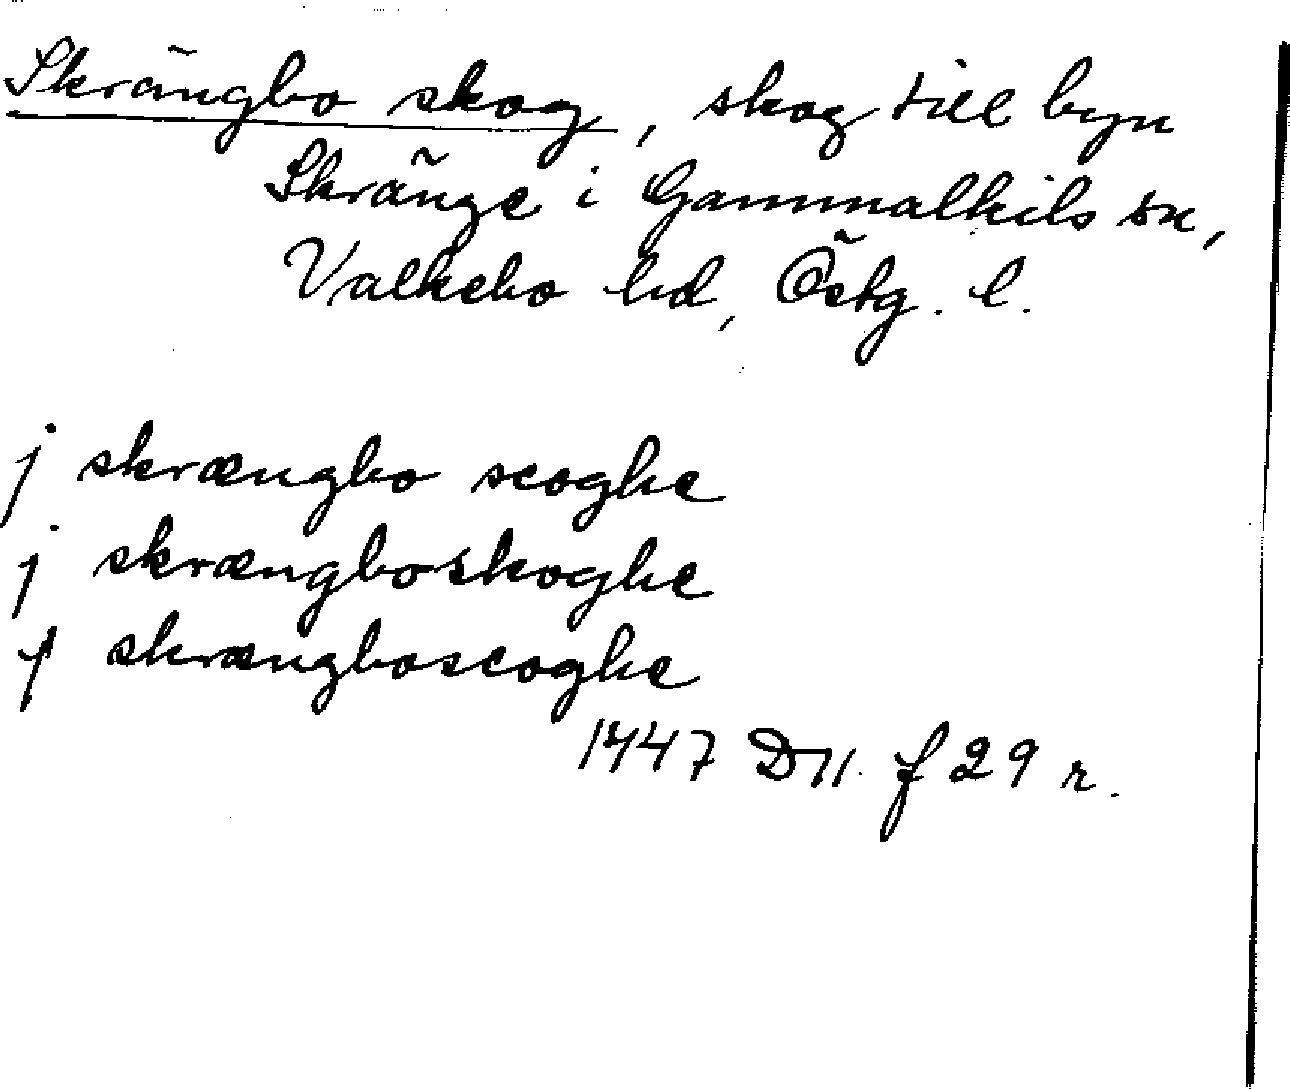 Skrängbo skog, skog till byn
Skränge i Gammalkils sn,
Valkebo hd, Östg. l.
j skrængbo scoghe
j skrængboskoghe
j skrængboscoghe
1447 D 11. f 29 r.